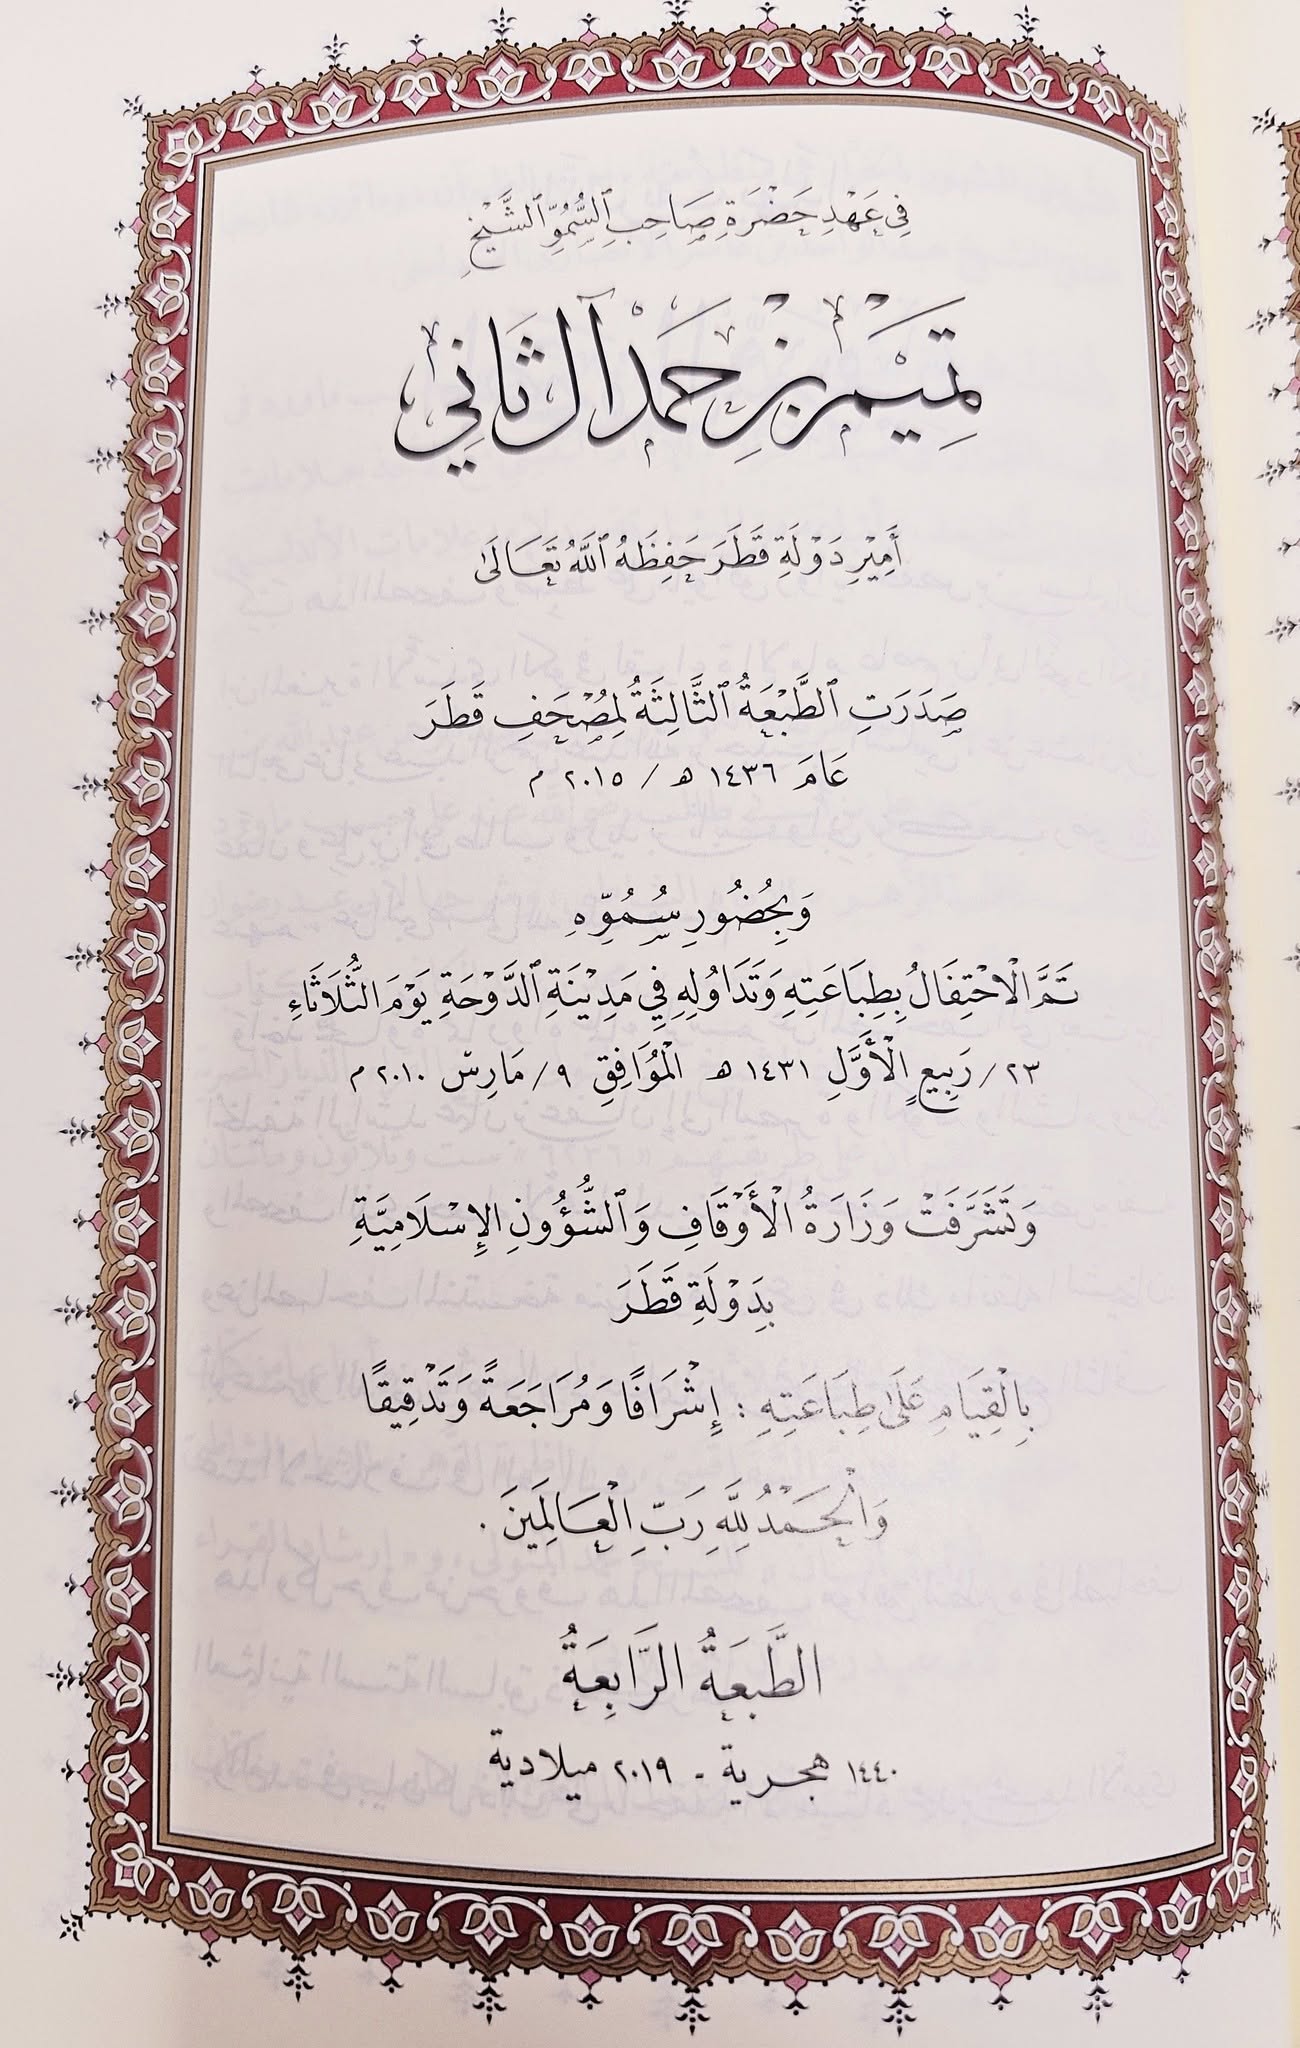 فِي عَهْدِ حَضْرَةِ صَاحِبِ ٱلسُّمُوِّ ٱلشَّيْخِ
تَمِيمِ بْنِ حَمَدْ آلِ ثَانِي
أَمِيْرِ دَوْلَةِ قَطَرَ حَفِظَهُ ٱللَّهُ تَعَالَىٰ
صَدَرَتِ ٱلطَّبْعَةُ ٱلثَّالِثَةُ لِمُصْحَفِ قَطَرَ
عَامَ ١٤٣٦ هـ / ٢٠١٥ م
وَبِحُضُورِ سُمُوِّهِ
تَمَّ الْاحْتِفَالُ بِطِبَاعَتِهِ وَتَدَاوُلِهِ فِي مَدِيْنَةِ ٱلدَّوْحَةِ يَوْمَ الثُّلَاثَاءِ
٢٣/ رَبِيعٍ الْأَوَّلِ ١٤٣١ هـ الْمُوَافِقِ ٩/ مَارِسْ ٢٠١٠ م
وَتَشَرَّفَتْ وَزَارَةُ الْأَوْقَافِ وَٱلشُّؤُونِ الْإِسْلَامِيَّةِ
بِدَوْلَةِ قَطَرَ
بِالْقِيَامِ عَلَىٰ طِبَاعَتِهِ : إِشْرَافًا وَمُرَاجَعَةً وَتَدْقِيقًا
وَالْحَمْدُ لِلَّهِ رَبِّ الْعَالَمِينَ .
الطَّبعَةُ الرَّابِعَةُ
١٤٤٠ هجرية - ٢٠١٩ ميلادية